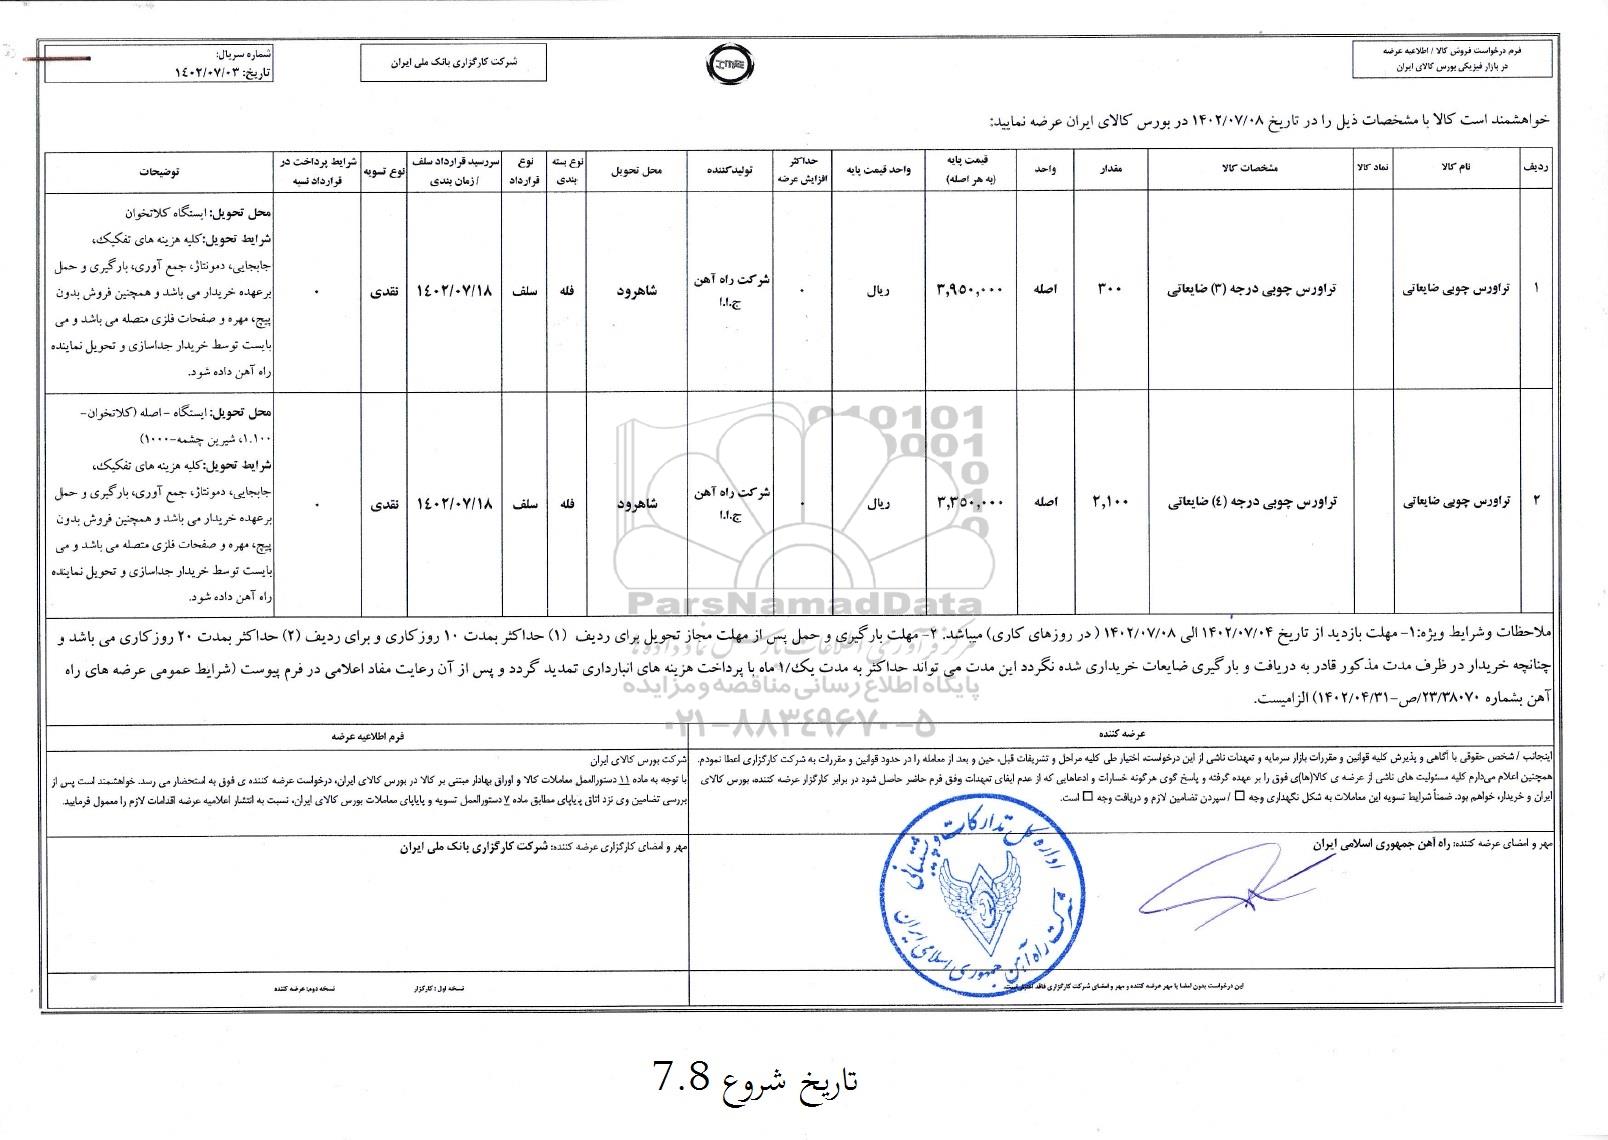 فرم درخواست فروش کالا / اطلاعیه عرضه
در بازار فیزیکی بورس کالای ایران
شرکت کارگزاری بانک ملی ایران
شماره سریال:
تاریخ: ۱۴۰۲/۰۷/۰۳
خواهشمند است کالا با مشخصات ذیل را در تاریخ ۱۴۰۲/۰۷/۰۸ در بورس کالای ایران عرضه نمایید:
ردیف نام کالا نماد کالا مشخصات کالا مقدار واحد قیمت پایه (به هر اصله) واحد قیمت پایه حداکثر افزایش عرضه تولیدکننده محل تحویل نوع بسته بندی نوع قرارداد سررسید قرارداد سلف / زمان بندی نوع تسویه شرایط پرداخت در قرارداد نسیه توضیحات
۱ تراورس چوبی ضایعاتی تراورس چوبی درجه (۳) ضایعاتی ۳۰۰ اصله ۳,۹۵۰,۰۰۰ ریال ۰ شرکت راه آهن ج.ا.ا شاهرود فله سلف ۱۴۰۲/۰۷/۱۸ نقدی ۰
محل تحویل: ایستگاه کلاتخوان
شرایط تحویل:کلیه هزینه های تفکیک،
جابجایی، دمونتاژ، جمع آوری، بارگیری و حمل
برعهده خریدار می باشد و همچنین فروش بدون
پیچ، مهره و صفحات فلزی متصله می باشد و می
بایست توسط خریدار جداسازی و تحویل نماینده
راه آهن داده شود.
۲ تراورس چوبی ضایعاتی تراورس چوبی درجه (۴) ضایعاتی ۲,۱۰۰ اصله ۳,۳۵۰,۰۰۰ ریال ۰ شرکت راه آهن ج.ا.ا شاهرود فله سلف ۱۴۰۲/۰۷/۱۸ نقدی ۰
محل تحویل: ایستگاه -اصله (کلاتخوان-
۱.۱۰۰، شیرین چشمه-۱۰۰۰)
شرایط تحویل:کلیه هزینه های تفکیک،
جابجایی، دمونتاژ، جمع آوری، بارگیری و حمل
برعهده خریدار می باشد و همچنین فروش بدون
پیچ، مهره و صفحات فلزی متصله می باشد و می
بایست توسط خریدار جداسازی و تحویل نماینده
راه آهن داده شود.
ParsNamadData
پایگاه اطلاع رسانی مناقصه و مزایده
۰۲۱-۸۸۳۴۹۶۷۰-۵
ملاحظات وشرایط ویژه:۱- مهلت بازدید از تاریخ ۱۴۰۲/۰۷/۰۴ الی ۱۴۰۲/۰۷/۰۸ ( در روزهای کاری) میباشد. ۲- مهلت بارگیری و حمل پس از مهلت مجاز تحویل برای ردیف (۱) حداکثر بمدت ۱۰ روزکاری و برای ردیف (۲) حداکثر بمدت ۲۰ روزکاری می باشد و
چنانچه خریدار در ظرف مدت مذکور قادر به دریافت و بارگیری ضایعات خریداری شده نگردد این مدت می تواند حداکثر به مدت یک/۱ ماه با پرداخت هزینه های انبارداری تمدید گردد و پس از آن رعایت مفاد اعلامی در فرم پیوست (شرایط عمومی عرضه های راه
آهن بشماره ۲۳/۳۸۰۷۰/ص-۱۴۰۲/۰۴/۳۱) الزامیست.
عرضه کننده
اینجانب / شخص حقوقی با آگاهی و پذیرش کلیه قوانین و مقررات بازار سرمایه و تعهدات ناشی از این درخواست، اختیار طی کلیه مراحل و تشریفات قبل، حین و بعد از معامله را در حدود قوانین و مقررات به شرکت کارگزاری اعطا نمودم.
همچنین اعلام می‌دارم کلیه مسئولیت های ناشی از عرضه ی کالا(ها)ی فوق را بر عهده گرفته و پاسخ گوی هرگونه خسارات و ادعاهایی که از عدم ایفای تعهدات وفق فرم حاضر حاصل شود در برابر کارگزار عرضه کننده، بورس کالای
ایران و خریدار، خواهم بود. ضمناً شرایط تسویه این معاملات به شکل نگهداری وجه □ / سپردن تضامین لازم و دریافت وجه □ است.
فرم اطلاعیه عرضه
شرکت بورس کالای ایران
با توجه به ماده ۱۱ دستورالعمل معاملات کالا و اوراق بهادار مبتنی بر کالا در بورس کالای ایران، درخواست عرضه کننده ی فوق به استحضار می رسد. خواهشمند است پس از
بررسی تضامین وی نزد اتاق پایاپای مطابق ماده ۷ دستورالعمل تسویه و پایاپای معاملات بورس کالای ایران، نسبت به انتشار اعلامیه عرضه اقدامات لازم را معمول فرمایید.
مهر و امضای عرضه کننده: راه آهن جمهوری اسلامی ایران
مهر و امضای کارگزاری عرضه کننده: شرکت کارگزاری بانک ملی ایران
اداره کل تدارکات و پشتیبانی
شرکت راه آهن جمهوری اسلامی ایران
این درخواست بدون امضا یا مهر عرضه کننده و مهر و امضای شرکت کارگزاری فاقد اعتبار است.
نسخه اول : کارگزار
نسخه دوم: عرضه کننده
تاریخ شروع 7.8